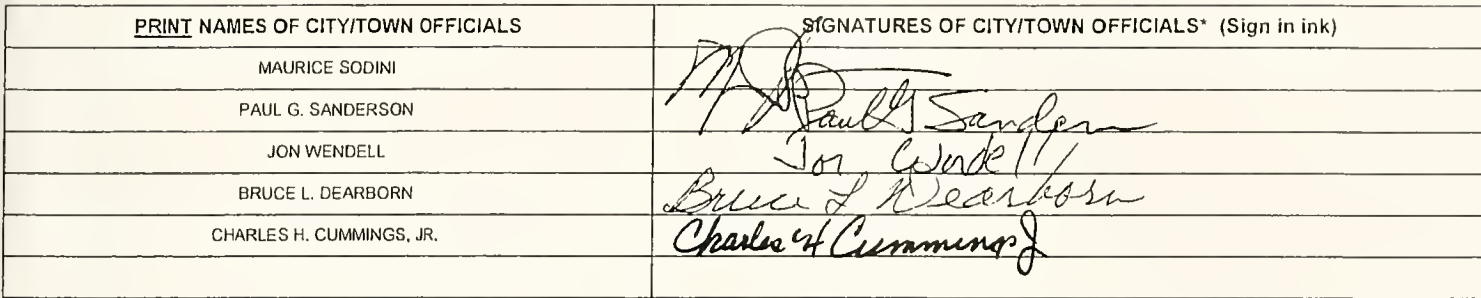 PRINT NAMES OF CITY/TOWN OFFICIALS SIGNATURES OF CITY/TOWN OFFICIALS* (Sign in ink)
MAURICE SODINI
PAUL G. SANDERSON Paul G Sanderson
JON WENDELL Jon Wendell
BRUCE L. DEARBORN Bruce L Dearborn
CHARLES H. CUMMINGS, JR. Charles H Cummings J